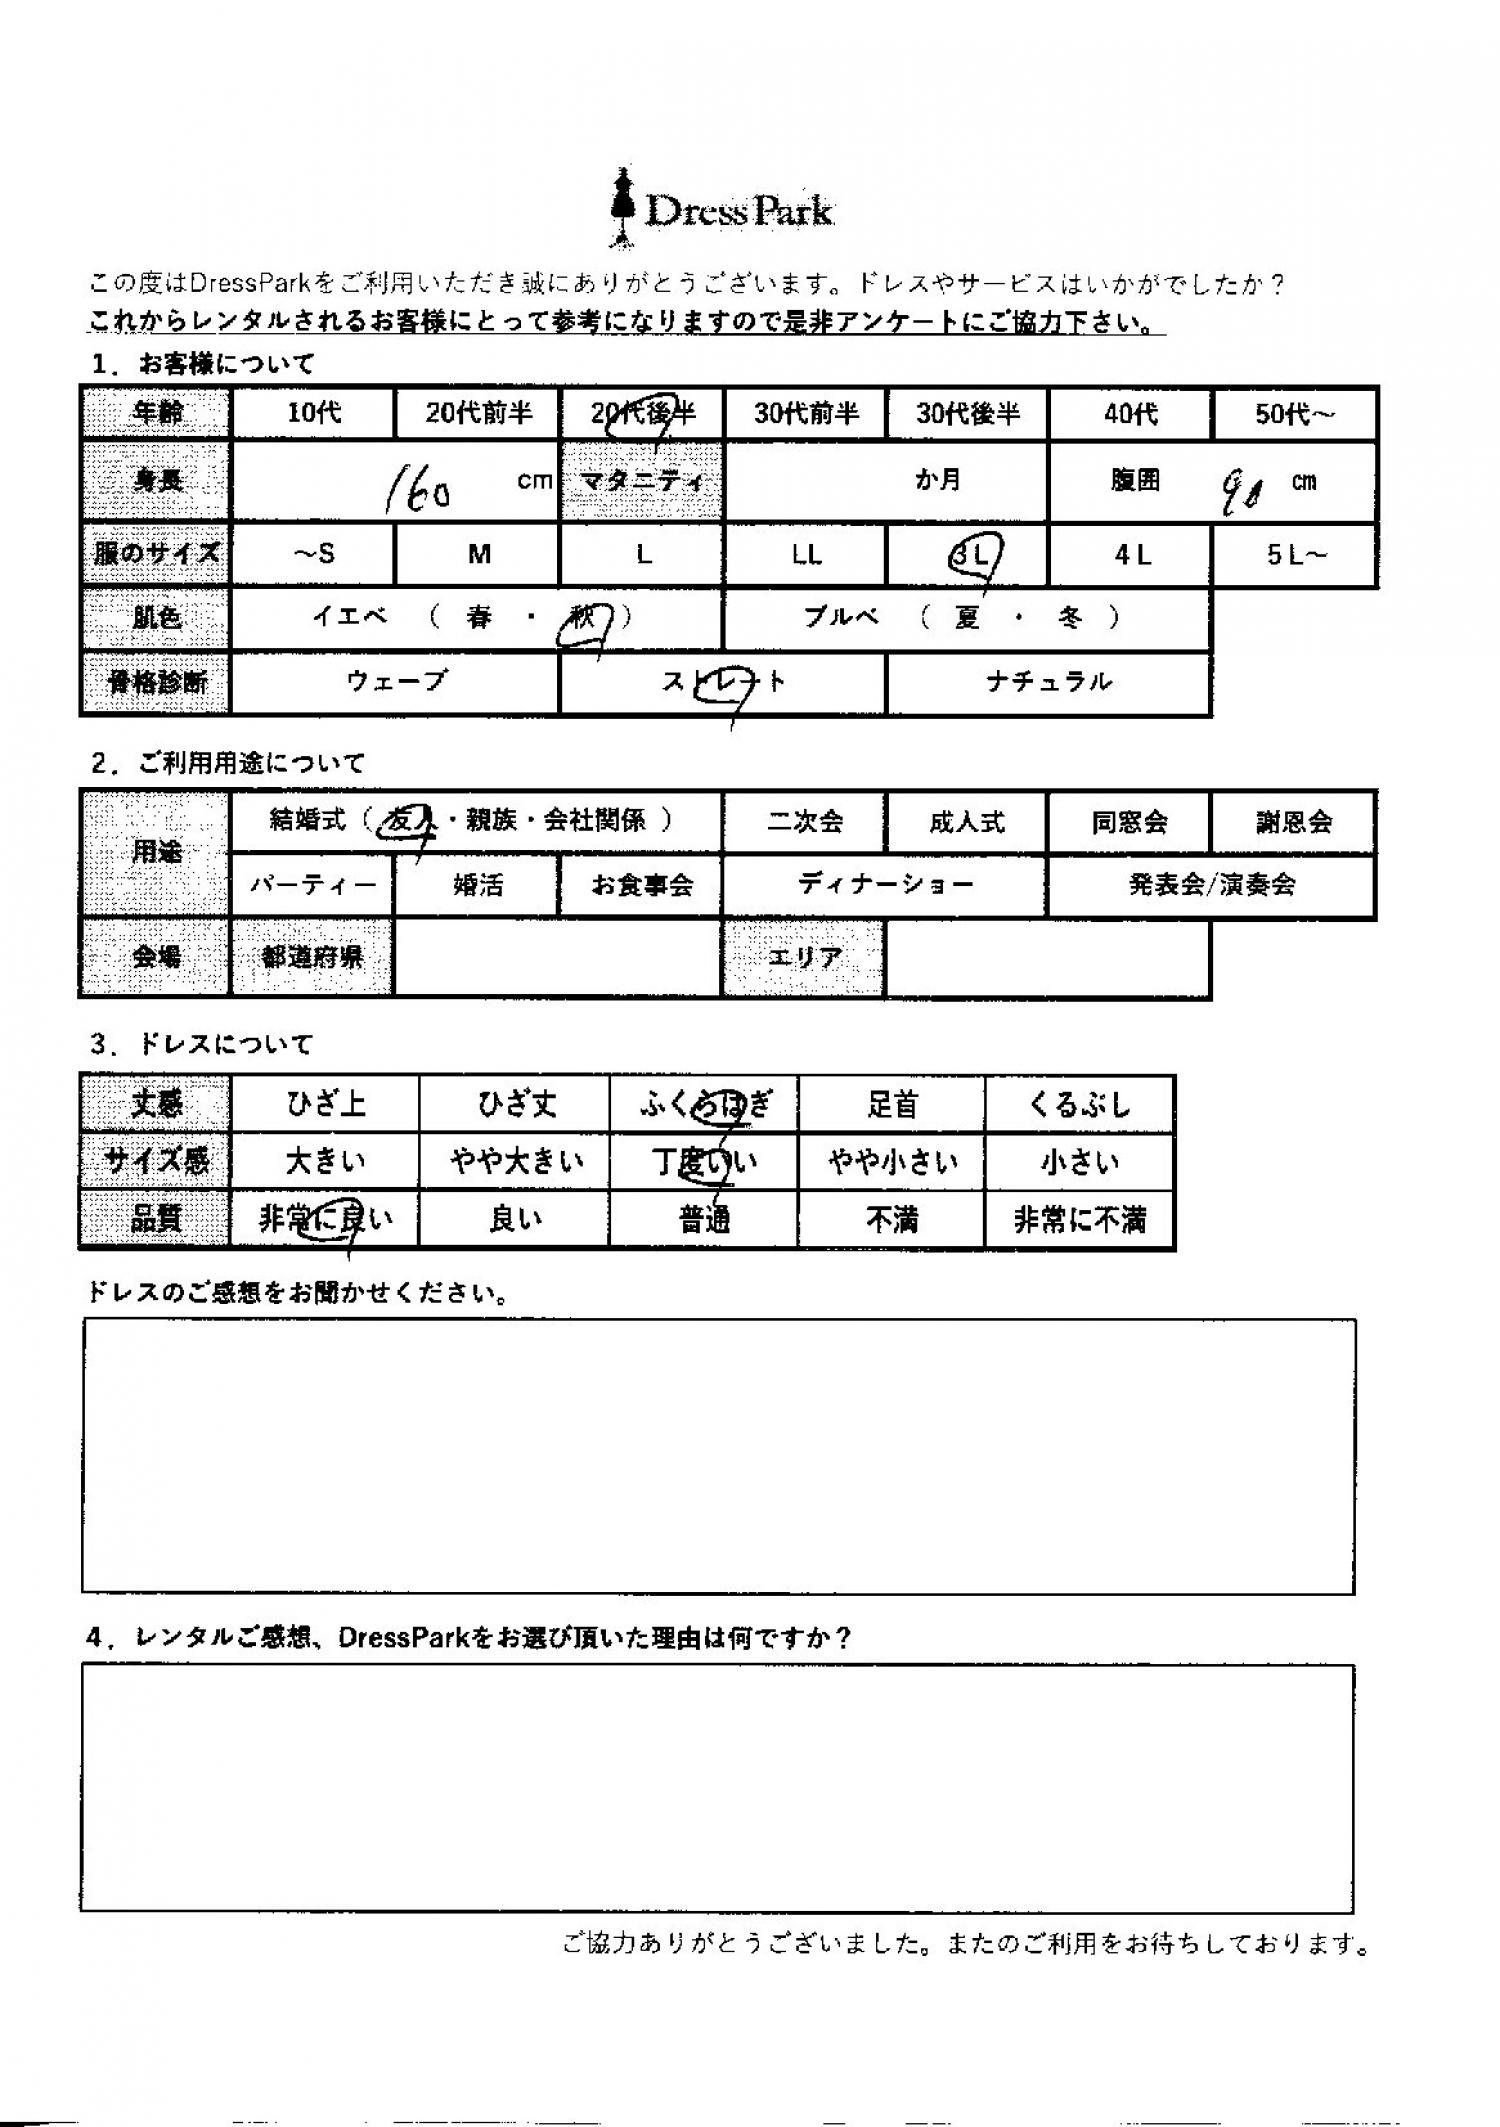 DressPark
この度はDressParkをご利用いただき誠にありがとうございます。ドレスやサービスはいかがでしたか？
これからレンタルされるお客様にとって参考になりますので是非アンケートにご協力下さい。
1．お客様について
年齢 10代 20代前半 20代後半 30代前半 30代後半 40代 50代～
身長 160 cm マタニティ か月 腹囲 90 cm
服のサイズ ～S M L LL 3L 4L 5L～
肌色 イエベ （ 春 ・ 秋 ） ブルベ （ 夏 ・ 冬 ）
骨格診断 ウェーブ ストレート ナチュラル
2．ご利用用途について
用途 結婚式（ 友人・親族・会社関係 ） 二次会 成人式 同窓会 謝恩会
パーティー 婚活 お食事会 ディナーショー 発表会/演奏会
会場 都道府県 エリア
3．ドレスについて
丈感 ひざ上 ひざ丈 ふくらはぎ 足首 くるぶし
サイズ感 大きい やや大きい 丁度いい やや小さい 小さい
品質 非常に良い 良い 普通 不満 非常に不満
ドレスのご感想をお聞かせください。
4．レンタルご感想、DressParkをお選び頂いた理由は何ですか？
ご協力ありがとうございました。またのご利用をお待ちしております。